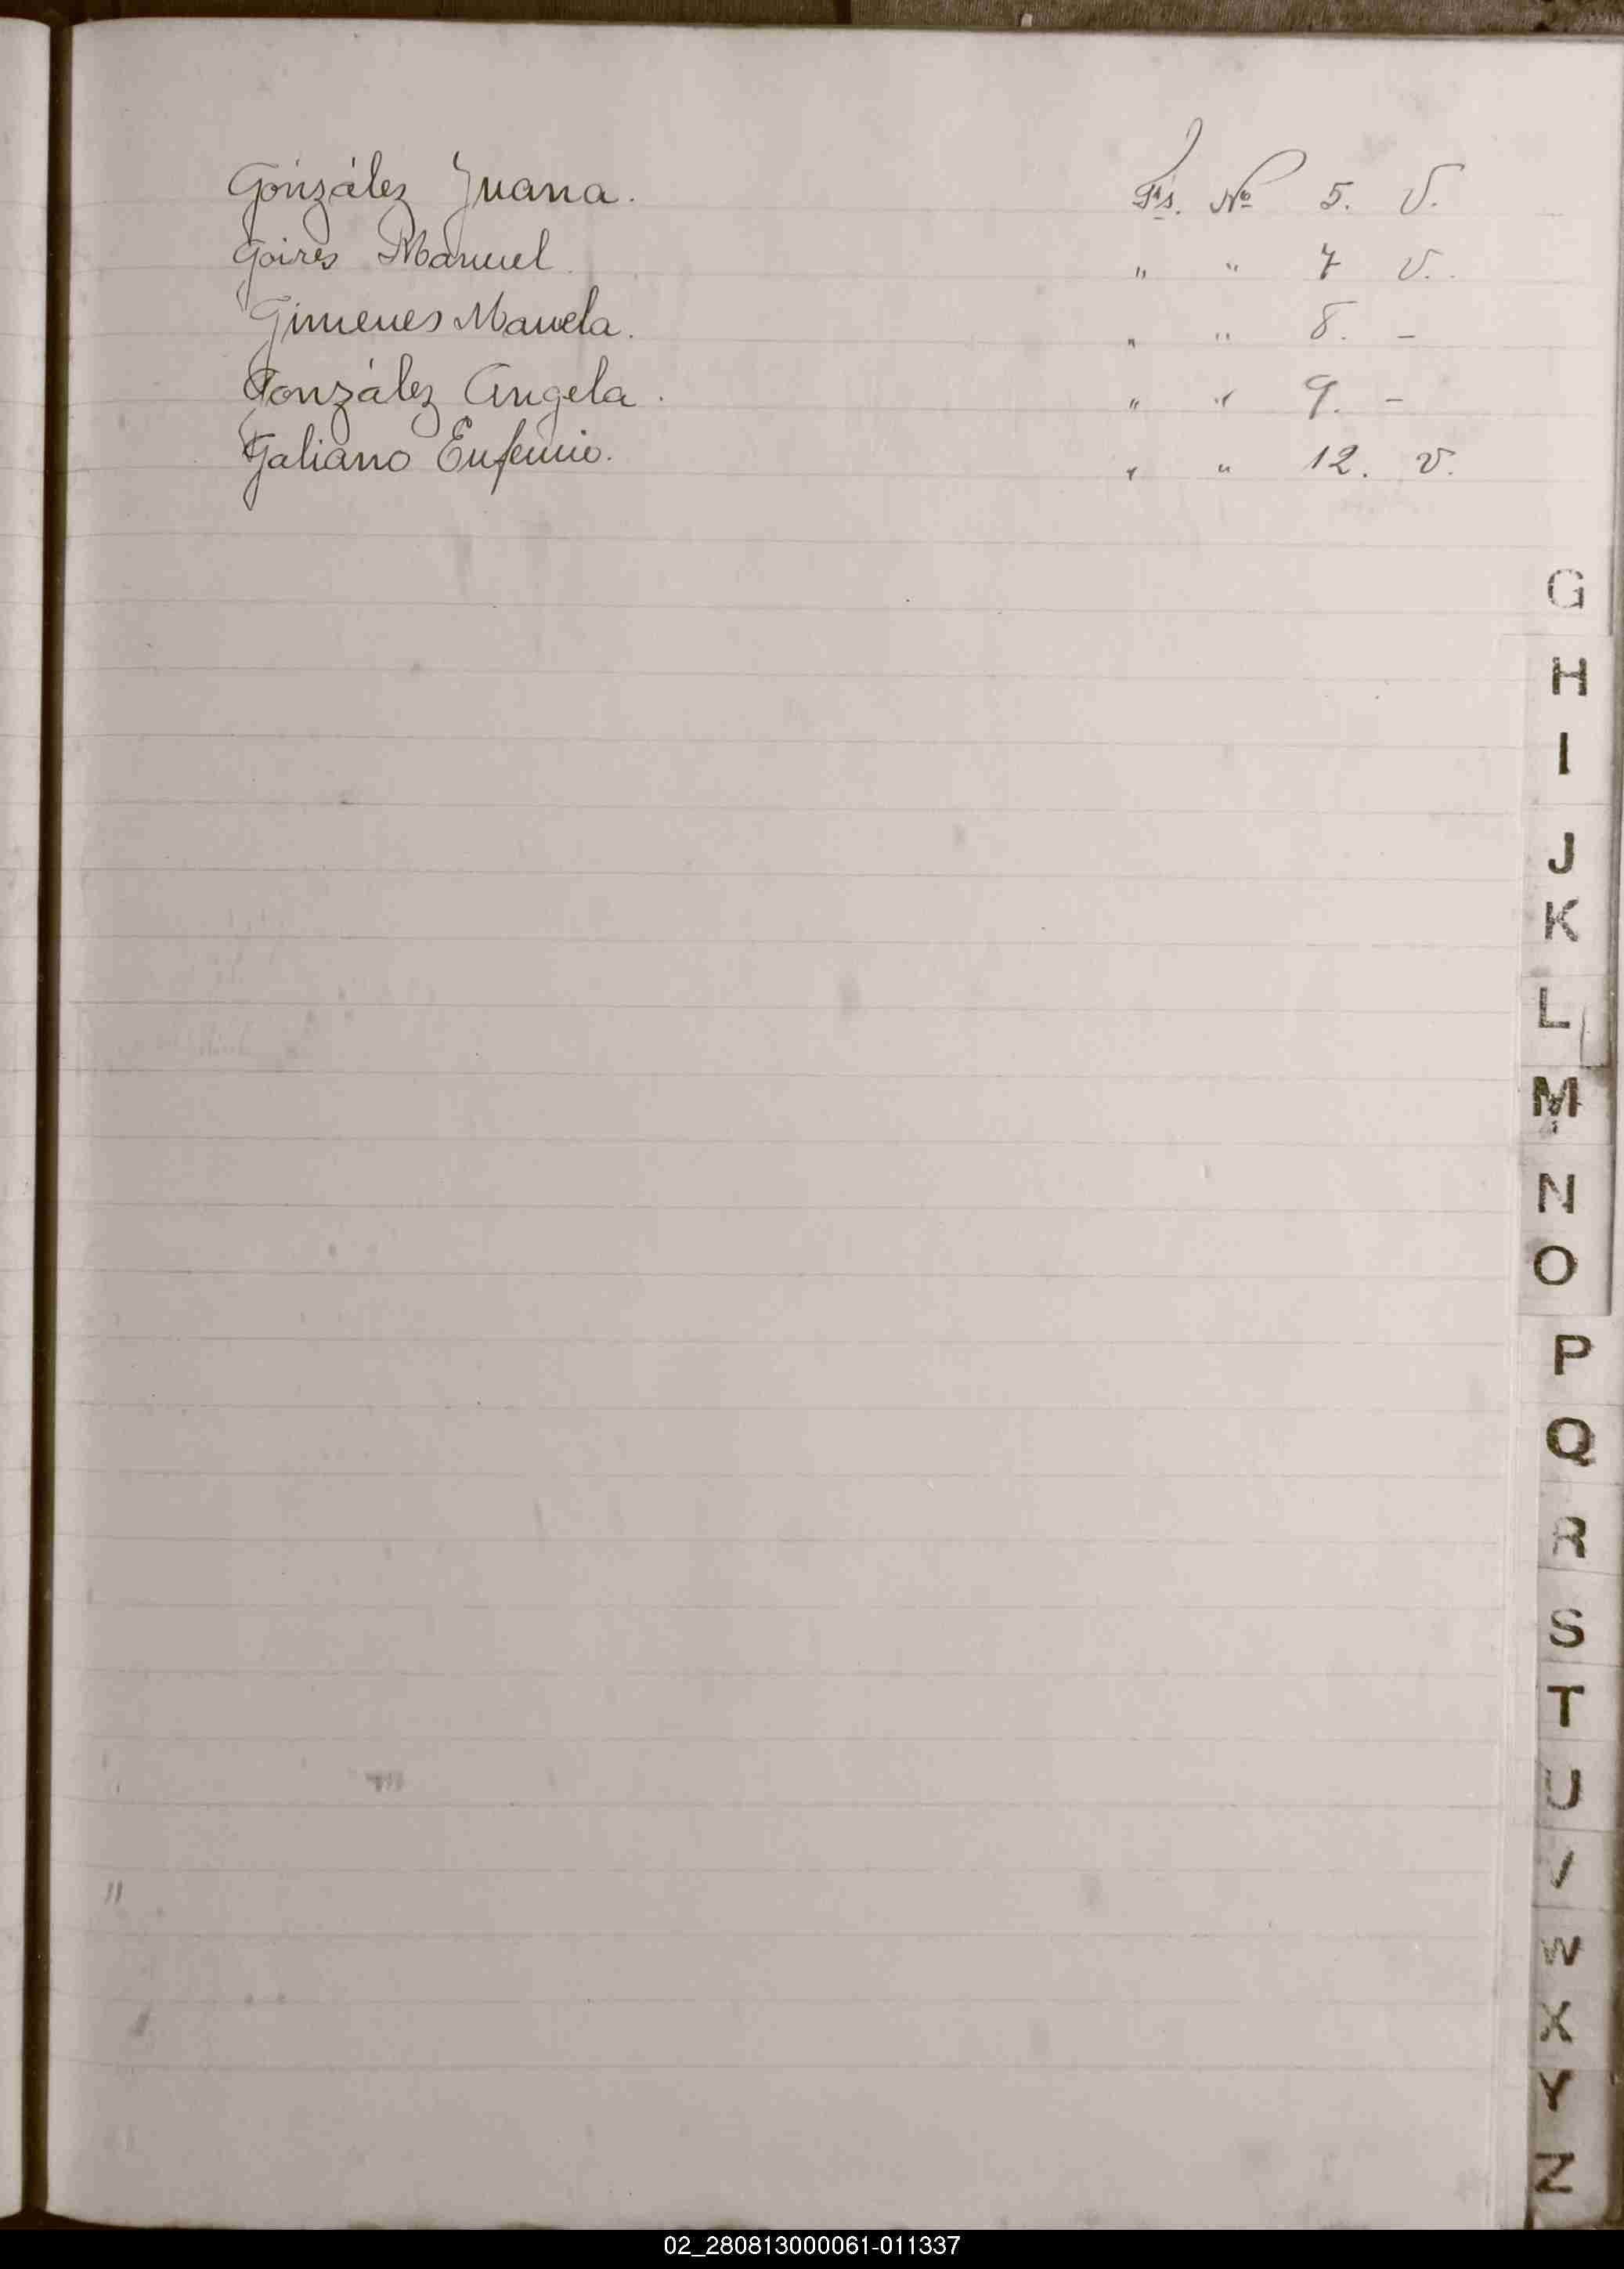 González Juana. Fs. Nº 5. V.
Goires Manuel. " " 7 V.
Gimenes Manuela. " " 8. -
González Angela. " " 9. -
Galiano Eufemio. " " 12. V.
G
H
I
J
K
L
M
N
O
P
Q
R
S
T
U
V
W
X
Y
Z
02_280813000061-011337